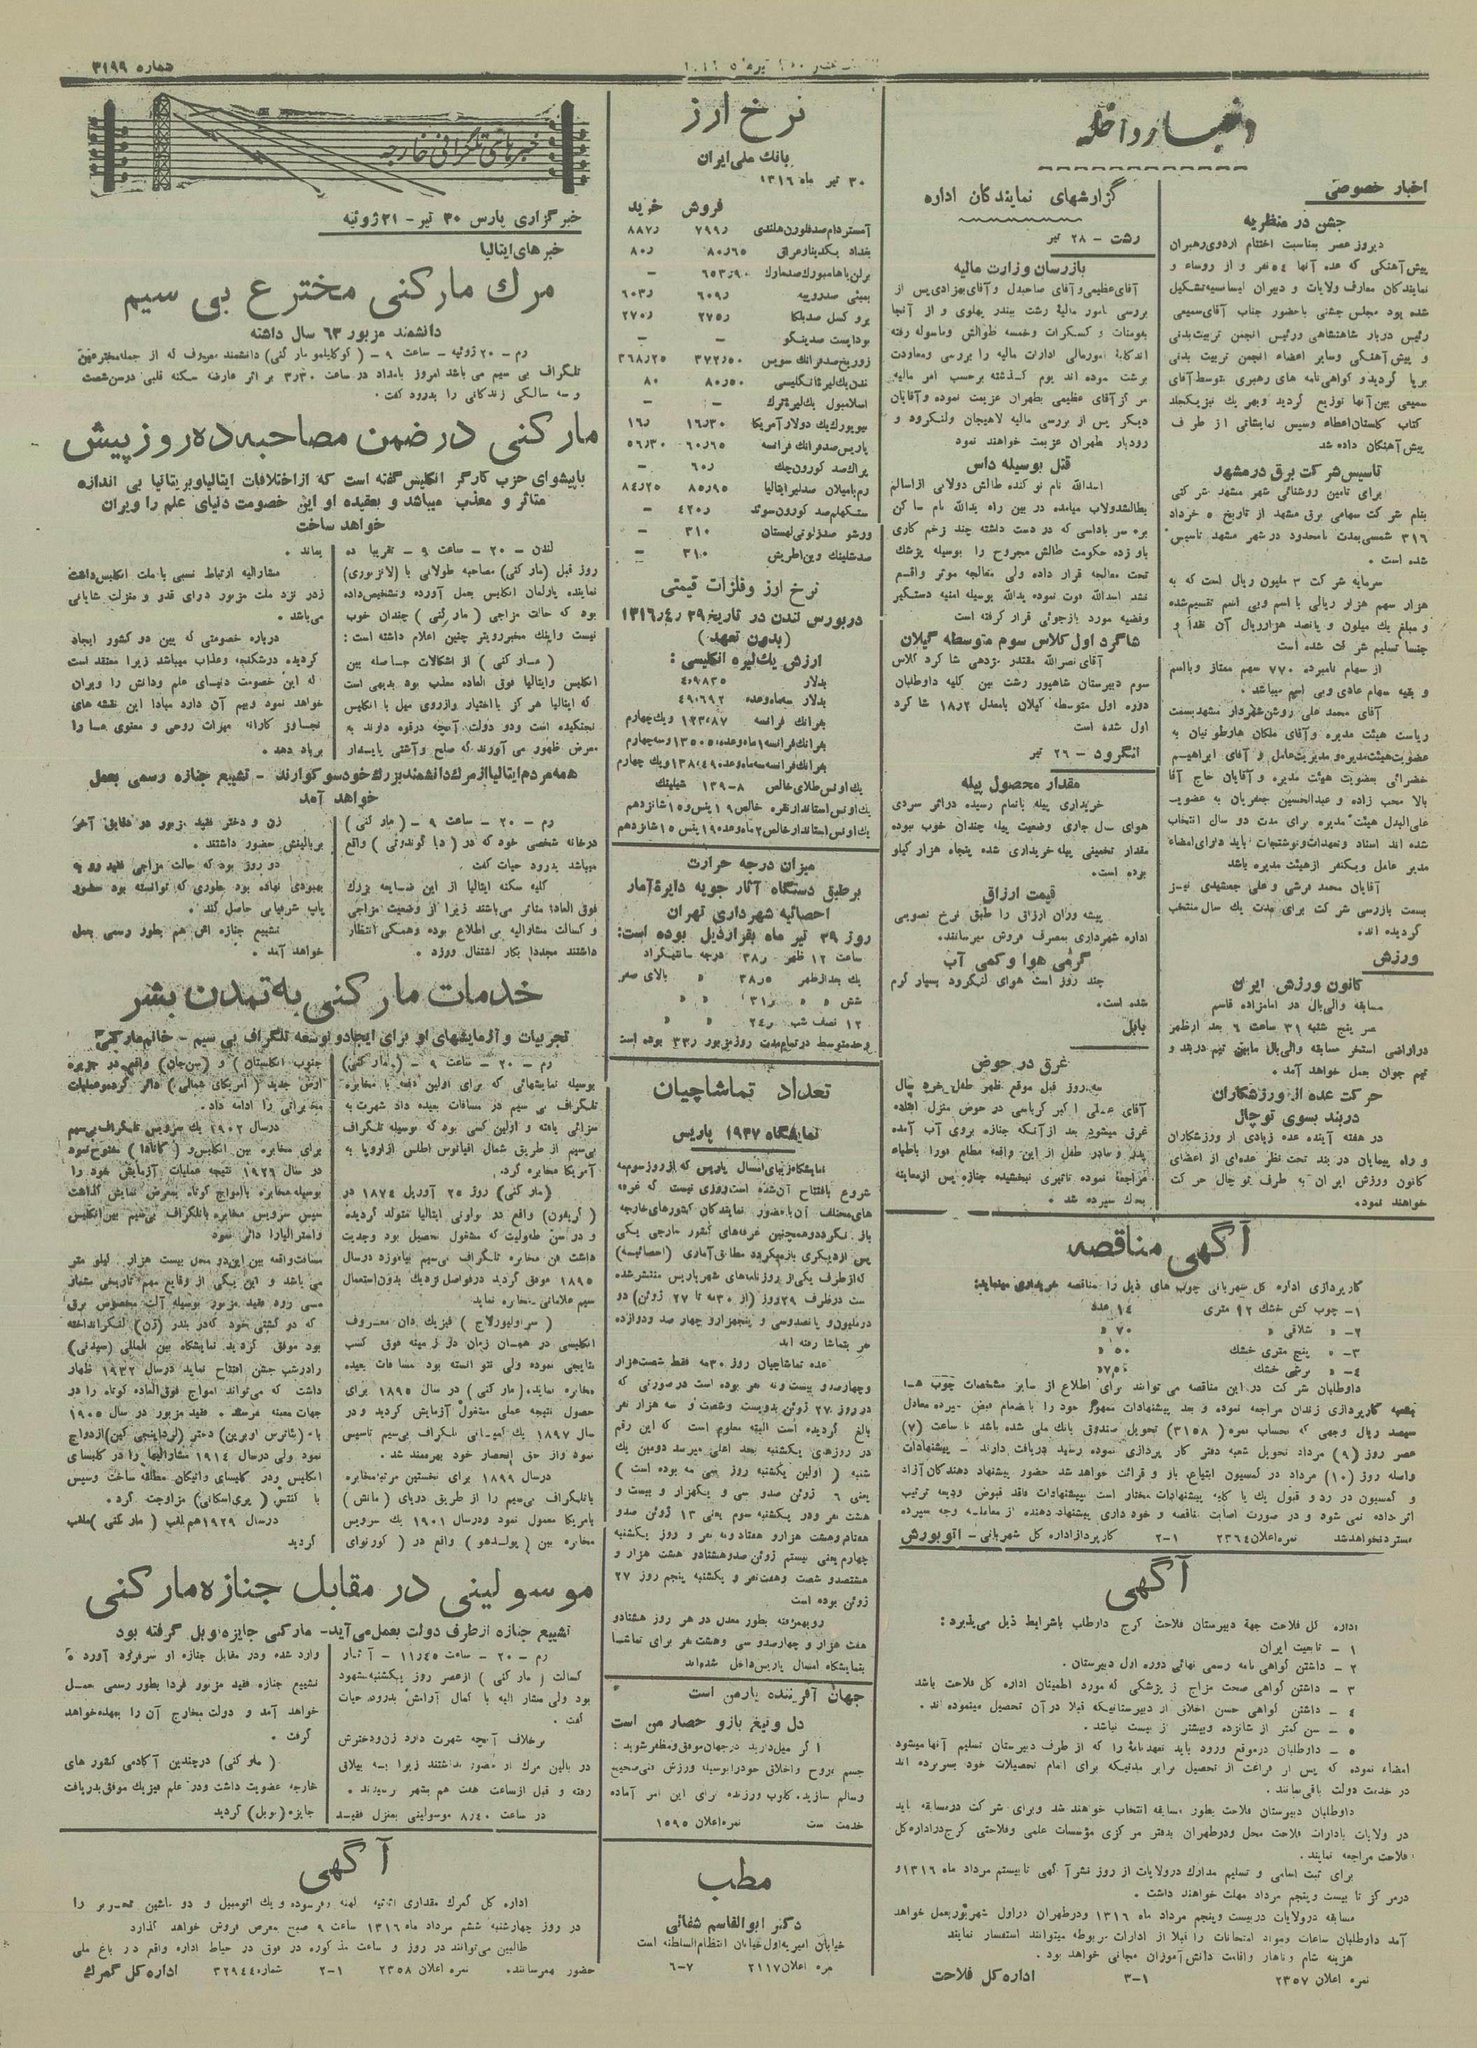 شماره ۳۱۹۹
اخبار داخله
اخبار خصوصی
جشن در منظریه
دیروز عصر بمناسبت اختتام اردوی رهبران
پیش‌آهنگی که عده آنها ٥٤ نفر و از روساء و
نمایندگان معارف ولایات و دبیران لیسانسیه تشکیل
شده بود مجلس جشنی باحضور جناب آقای سمیعی
رئیس دربار شاهنشاهی و رئیس انجمن تربیت بدنی
و پیش آهنگی وسایر اعضاء انجمن تربیت بدنی
برپا گردید و گواهی نامه های رهبری توسط آقای
سمیعی بین آنها توزیع گردید و بهر یک نیز یکجلد
کتاب گلستان اعطاء و سپس نمایشاتی از طرف
پیش آهنگان داده شد
تاسیس شرکت برق در مشهد
برای تامین روشنائی شهر مشهد شرکتی
بنام شرکت سهامی برق مشهد از تاریخ ٥ خرداد
۳۱٦ شمسی بمدت نامحدود در شهر مشهد تاسیس
شده است .
سرمایه شرکت ۳ ملیون ریال است که به
هزار سهم هزار ریالی با اسم وبی اسم تقسیم شده
و مبلغ یک میلیون و پانصد هزار ریال آن نقدا و
جنسا تسلیم شرکت شده است
از سهام نامبرده ۷۷۰ سهم ممتاز وبااسم
و بقیه سهام عادی وبی اسم میباشد .
آقای محمد علی روشن شهردار مشهد بسمت
ریاست هیئت مدیره و آقای ملکان هارطونیان به
عضویت هیئت مدیره و مدیریت عامل و آقای ابراهیم
خضرائی بعضویت هیئت مدیره و آقایان حاج آقا
بالا محب زاده و عبدالحسین جعفریان به عضویت
علی البدل هیئت مدیره برای مدت دو سال انتخاب
شده اند اسناد و تعهدات و نوشتجات باید دارای امضاء
مدیر عامل ویکنفر از هیئت مدیره باشد
آقایان محمد قرشی و علی جمشیدی نیز
بسمت بازرسی شرکت برای مدت یک سال منتخب
گردیده اند.
ورزش
کانون ورزش ایران
مسابقه والی‌بال در امامزاده قاسم
عصر پنج شنبه ۳۱ ساعت ٦ بعد از ظهر
در اراضی استخر مسابقه والی‌بال مابین تیم دربند و
تیم جوان بعمل خواهد آمد .
حرکت عده از ورزشکاران
دربند بسوی توچال
در هفته آینده عده زیادی از ورزشکاران
و راه پیمایان دربند تحت نظر عده‌ای از اعضای
کانون ورزش ایران به طرف توچال حرکت
خواهند نمود.
گزارشهای نمایندگان اداره
رشت - ۲۸ تیر
بازرسان وزارت مالیه
آقای عظیمی و آقای صاحبدل و آقای بهزادی پس از
بررسی امور مالیه رشت ببندر پهلوی و از آنجا
بفومنات و گسکرات وخمسه طوالش وماسوله رفته
برشت نموده اند یوم گذشته برحسب امر مالیه
مرکز آقای عظیمی بطهران عزیمت نموده و آقایان
دیگر پس از بررسی مالیه لاهیجان ولنگرود و
رودبار طهران عزیمت خواهند نمود
قتل بوسیله داس
اسدالله نام نو کنده طالش دولابی از اسالم
بطالشدولاب میامده در بین راه یدالله نام ساکن
بره سر باداسی که در دست داشته چند زخم کاری
باو زده حکومت طالش مجروح را بوسیله پزشک
تحت معالجه قرار داده ولی معالجه موثر واقع
نشد اسدالله فوت نموده یدالله بوسیله امنیه دستگیر
وقضیه مورد بازجوئی قرار گرفته است
شاگرد اول کلاس سوم متوسطه گیلان
آقای نصرالله مقتدر مژدهی شاگرد کلاس
سوم دبیرستان شاهپور رشت بین کلیه داوطلبان
دوره اول متوسطه گیلان بامعدل ۱۸٫۲ شاگرد
اول شده است
لنگرود - ۲٦ تیر
مقدار محصول پیله
خریداری پیله باتمام رسیده دراثر سردی
هوای سال جاری وضعیت پیله چندان خوب نبوده
مقدار تخمینی پیله خریداری شده پنجاه هزار کیلو
بوده است.
قیمت ارزاق
پیشه وران ارزاق را طبق نرخ تصویبی
اداره شهرداری بمصرف فروش میرسانند.
گرمی هوا و کمی آب
چند روز است هوای لنگرود بسیار گرم
شده است.
بابل
غرق در حوض
سه روز قبل موقع ظهر طفل خرد سال
آقای علی اکبر کرباسی در حوض منزل افتاده
غرق میشود بعد از آنکه جنازه بروی آب آمده
پدر و مادر طفل از این واقعه مطلع فورا باطباء
مراجعه نموده تاثیری نبخشیده جنازه پس از معاینه
بخاک سپرده شد .
آگهی مناقصه
کارپردازی اداره کل شهربانی چوب های ذیل را مناقصه خریداری مینماید:
۱- چوب کش خشک ۱۲ متری ۱٤ عدد
۲- « شلاقی « ۷۰ «
۳- « پنج متری خشک ٥۰ «
٤- « برشی خشک ۷٥۰ «
داوطلبان شرکت در این مناقصه می توانند برای اطلاع از سایر مشخصات چوب ها
بشعبه کارپردازی زندان مراجعه نموده و بعد پیشنهادات ممهور خود را بانضمام قبض سپرده معادل
سیصد ریال وجهی که بحساب نمره (۳۱٥۸) تحویل صندوق بانک ملی شده باشد تا ساعت (۷)
عصر روز (۹) مرداد تحویل شعبه دفتر کارپردازی نموده رسید دریافت دارند - پیشنهادات
واصله روز (۱۰) مرداد در کمسیون ابتیاع باز و قرائت خواهد شد حضور پیشنهاد دهندگان آزاد
و کمسیون در رد و قبول یک یا کلیه پیشنهادات مختار است بپیشنهادات فاقد قبوض ودیعه ترتیب
اثر داده نمی شود و در صورت اصابت مناقصه و خودداری پیشنهاد دهنده از معامله وجه سپرده
مسترد نخواهد شد نمره اعلان ۲۳٦٤ ۲-۱ کارپرداز اداره کل شهربانی - اتوبورش
آگهی
اداره کل فلاحت جهة دبیرستان فلاحت کرج داوطلب باشرایط ذیل می‌پذیرد :
۱ - تابعیت ایران
۲ - داشتن گواهی نامه رسمی نهائی دوره اول دبیرستان .
۳ - داشتن گواهی صحت مزاج از پزشکی که مورد اطمینان اداره کل فلاحت باشد
٤ - داشتن گواهی حسن اخلاق از دبیرستانیکه قبلا در آن تحصیل مینموده اند .
٥ - سن کمتر از شانزده وبیشتر از بیست نباشد .
٥ - داوطلبان در موقع ورود باید تعهدنامهٔ را که از طرف دبیرستان تسلیم آنها میشود
امضاء نموده که پس از فراغت از تحصیل برابر مدتیکه برای اتمام تحصیلات خود بسر برده اند
در خدمت دولت باقی بمانند .
داوطلبان دبیرستان فلاحت بطور مسابقه انتخاب خواهند شد وبرای شرکت در مسابقه باید
در ولایات بادارات فلاحت محل و در طهران بدفتر مرکزی مؤسسات علمی وفلاحتی کرج در اداره کل
فلاحت مراجعه نمایند .
برای ثبت اسامی و تسلیم مدارک در ولایات از روز نشر آگهی تا بیستم مرداد ماه ۱۳۱٦ و
در مرکز تا بیست وپنجم مرداد مهلت خواهند داشت .
مسابقه در ولایات در بیست وپنجم مرداد ماه ۱۳۱٦ ودر طهران در اول شهریور بعمل خواهد
آمد داوطلبان ساعات ومواد امتحانات را قبلا از ادارات مربوطه میتوانند استفسار نمایند
هزینه شام وناهار واقامت دانش آموزان مجانی خواهد بود .
نمره اعلان ۲۳٥۷ ۳-۱ اداره کل فلاحت
نرخ ارز
بانک ملی ایران
۳۰ تیر ماه ۱۳۱٦
فروش خرید
آمستردام صد فلورن هلندی ۷۹۹٫ ۸۸۷٫
بغداد یکدینار عراقی ۸۰٫٦٥ ۸۰٫
برلن یا هامبورک صد مارک ٦٥۳٫۹۰ -
بمبئی صد روپیه ٦۰۹٫ ٦۰۳٫
بروکسل صد بلگا ۲۷٥٫ ۲۷۰٫
بوداپست صد پنگو
زوریخ صد فرانک سویس ۳۷۲٫٥۰ ۳٦۸٫۲٥
لندن یک لیره انگلیسی ۸۰٫٥۰ ۸۰
اسلامبول یک لیره ترک - -
نیویورک یک دولار آمریکا ۱٦٫۳۰ ۱٦٫
پاریس صد فرانک فرانسه ٦۰٫٦٥ ٥٦٫۳۰
پراک صد کورون چک ٦۰٫ -
رم یا میلان صد لیر ایتالیا ۸٥٫۹٥ ۸٤٫۲٥
ستکهلم صد کورون سوئد ٤۲۰٫ -
ورشو صد زلوتی لهستان ۳۱۰ -
صد شلینک وین اطریش ۳۱۰ -
نرخ ارز وفلزات قیمتی
در بورس لندن در تاریخ ۲۹ ر٤ر۱۳۱٦
(بدون تعهد)
ارزش یک لیره انگلیسی :
بدلار ٤٫۹۸۳٥
بدلار سه ماه وعده ٤٫۹٦۹۲
بفرانک فرانسه ۱۳۳٫۸۷ ویک چهارم
بفرانک فرانسه ۱ ماه وعده ۱۳٥٫۰٥ وسه چهارم
بفرانک فرانسه سه ماه وعده ۱۳۸٫٤۹ ویک چهارم
یک اونس طلای خالص ۸-۱۳۹ شیلینک
یک اونس استاندارد نقره خالص ۱۹ پنس و ۱٥ شانزدهم
یک اونس استاندارد خالص ۲ ماه وعده ۱۹ پنس ۱٥ شانزدهم
میزان درجه حرارت
برطبق دستگاه آثار جویه دایرهٔ آمار
احصائیه شهرداری تهران
روز ۲۹ تیر ماه بقرار ذیل بوده است:
ساعت ۱۲ ظهر ۳۸٫ درجه سانتیگراد
یک بعد از ظهر ۳۸٫٥ « بالای صفر
شش « « ۳۱٫ « «
۱۲ نصف شب ۲٤٫ « «
وحد متوسط در تمام مدت روز مزبور ۳۳٫ بوده است
تعداد تماشاچیان
نمایشگاه ۱۹۳۷ پاریس
نمایشگاه زیبای امسال پاریس که از روز سوم مه
شروع بافتتاح آن شده است روزی نیست که غرفه
های مختلف آن باحضور نمایندگان کشورهای خارجه
باز نگردد و همچنین غرفه‌های کشور خارجی یکی
پس از دیگری باز میگردد مطابق آماری (احصائیه)
که از طرف یکی از روزنامه های شهر پاریس منتشر شده
است در ظرف ۲۹ روز (از ۳۰ مه تا ۲۷ ژوئن) دو
در ملیون و پانصد و سی و پنجهزار و چهار صد و دوازده
نفر بتماشا رفته اند
عده تماشاچیان روز ۳۰ مه فقط شصت هزار
وچهار صد و بیست و نه نفر بوده است در صورتی که
در روز ۲۷ ژوئن بدویست وشصت و سه هزار نفر
بالغ گردیده است البته معلوم است که این رقم
در روزهای یکشنبه بحد اعلی میرسد دومین یک
شنبه ( اولین یکشنبه روز سی مه بوده است )
یعنی ٦ ژوئن صد و سی و یکهزار و بیست و
هشت نفر ودر یکشنبه سوم یعنی ۱۳ ژوئن صد و
هفتاد وهشت هزار و هفتاد و سه نفر و روز یکشنبه
چهارم یعنی بیستم ژوئن صد و هشتاد و هشت هزار و
هشتصد و شصت و هفت نفر و یکشنبه پنجم روز ۲۷
ژوئن بوده است
رویهمرفته بطور معدل در هر روز هشتاد و
هفت هزار و چهار صد و سی وهشت نفر برای تماشا
بنمایشگاه امسال پاریس داخل شده‌اند
جهان آفریننده یار من است
دل و تیغ و بازو حصار من است
اگر میل دارید در جهان موفق و مظفر شوید :
جسم و روح و اخلاق خود را بوسیله ورزش فنی صحیح
وسالم سازید. کلوپ ورزنده برای این امر آماده
خدمت است نمره اعلان ۱٥۹٥
مطب
دکتر ابوالقاسم شفائی
خیابان امیریه اول خیابان انتظام السلطنه است
نمره اعلان ۲۱۱۷ ۷-٦
خبرهای تلگرافی خارجه
خبرگزاری پارس ۳۰ تیر - ۲۱ ژوئیه
خبرهای ایتالیا
مرک مارکنی مخترع بی سیم
دانشمند مزبور ٦۳ سال داشته
رم - ۲۰ ژوئیه - ساعت ۹ - (گوگلیلمو مارکنی) دانشمند معروف که از جمله مخترعین
تلگراف بی سیم می باشد امروز بامداد در ساعت ۳٫۳۰ بر اثر عارضه سکته قلبی در سن شصت
و سه سالگی زندگانی را بدرود گفت .
مارکنی در ضمن مصاحبه ده روز پیش
با پیشوای حزب کارگر انگلیس گفته است که از اختلافات ایتالیا و بریتانیا بی اندازه
متاثر و معذب میباشد و بعقیده او این خصومت دنیای علم را ویران
خواهد ساخت
لندن - ۲۰ - ساعت ۹ - تقریبا ده
روز قبل (مارکنی) مصاحبه طولانی با (لانزبوری)
نماینده پارلمان انگلیس بعمل آورده وتشخیص داده
بود که حالت مزاجی (مارکنی) چندان خوب
نیست واینک مخبر رویتر چنین اعلام داشته است :
( مارکنی ) از اشکالات حاصله بین
انگلیس وایتالیا فوق العاده معذب بود بدیهی است
که ایتالیا هرگز با اختیار و از روی میل با انگلیس
نجنگیده است ودو دولت آنچه در قوه دارند به
معرض ظهور می آورند که صلح و آشتی پایسدار
بماند .
مشارالیه ارتباط نسبی با ملت انگلیس داشت
زدر نزد ملت مزبور درای قدر و منزلت شایانی
می‌باشد .
درباره خصومتی که بین دو کشور ایجاد
گردیده در شکنجه وعذاب میباشد زیرا معتقد است
که این خصومت دنیای علم ودانش را ویران
خواهد نمود وبیم آن دارد مبادا این نقشه های
تجاوز کارانه میراث روحی و معنوی ما را
برباد دهد .
همه مردم ایتالیا از مرک دانشمند بزرک خود سوگوارند - تشییع جنازه رسمی بعمل
خواهد آمد
رم - ۲۰ - ساعت ۹ - (مارکنی)
در خانه شخصی خود که در (ویا کوندوتی) واقع
میباشد بدرود حیات گفت .
کلیه سکنه ایتالیا از این ضایعه بزرک
فوق العاده متاثر می‌باشند زیرا از وضعیت مزاجی
و کسالت مشارالیه بی اطلاع بوده وهمگی انتظار
داشتند مجددا بکار اشتغال ورزد .
زن و دختر فقید مزبور در دقایق آخر
بر بالینش حضور داشتند .
دو روز بود که حالت مزاجی فقید رو به
بهبودی نهاده بود بطوری که توانسته بود حضور
پاپ شرفیابی حاصل کند .
تشییع جنازه اش هم بطور رسمی بعمل
خواهد آمد .
خدمات مارکنی به تمدن بشر
تجربیات و آزمایشهای او برای ایجاد و توسعه تلگراف بی سیم - خانم مارکنی
رم - ۲۰ - ساعت ۹ - (مارکنی)
بوسیله نمایشهائی که برای اولین دفعه با مخابره
تلگراف بی سیم در مسافات بعیده داد شهرت به
سزائی یافته و اولین کسی بود که بوسیله تلگراف
بی‌سیم از طریق شمال اقیانوس اطلس از اروپا به
آمریکا مخابره کرد.
(مارکنی) روز ۲٥ آوریل ۱۸۷٤ در
( گریفون) واقع در بولونی ایتالیا متولد گردیده
و در سن طفولیت که مشغول تحصیل بود وجدیت
داشت فن مخابره تلگراف بی‌سیم بیاموزد در سال
۱۸۹٥ موفق گردید در فواصل نزدیک بدون استعمال
سیم علاماتی مخابره نماید
( سر اولیورلاج ) فیزیک دان معروف
انگلیسی در همان زمان در زمینه فوق کسب
نتایجی نموده ولی نتوانسته بود مسافات بعیده
مخابره نماید. (مارکنی) در سال ۱۸۹٥ برای
حصول نتیجه عملی مشغول آزمایش گردید و در
سال ۱۸۹۷ یک کمپانی تلگراف بی‌سیم تاسیس
نمود و از حق انحصار خود بهره‌مند شد .
در سال ۱۸۹۹ برای نخستین مرتبه مخابره
باتلگراف بی‌سیم را از طریق دریای (مانش)
بامریکا معمول نمود ودر سال ۱۹۰۱ یک سرویس
مخابره بین (پولدهو) واقع در ( کورنوای
جنوب انگلستان) و (سن‌جان) واقع در جزیره
ارض جدید (آمریکای شمالی) دائر کرد و عملیات
مخابراتی را ادامه داد.
در سال ۱۹۰۲ یک سرویس تلگراف بی‌سیم
برای مخابره بین انگلیس و (کانادا) مفتوح نمود
در سال ۱۹۲٦ نتیجه عملیات آزمایش خود را
بوسیله مخابره باامواج کوتاه بمعرض نمایش گذاشت
سپس سرویس مخابره باتلگراف بی‌سیم بین انگلیس
و استرالیا را دائر نمود
مسافت واقعه بین این دو محل بیست هزار کیلو متر
می باشد و این یکی از وقایع مهم تاریخی بشمار
می رود فقید مزبور بوسیله آلت مخصوص برق
که در کشتی خود که در بندر (ژن) لنگر انداخته
بود موفق گردید نمایشگاه بین المللی (سیدنی)
را در شب جشن افتتاح نماید در سال ۱۹۳۲ اظهار
داشت که می‌تواند امواج فوق العاده کوتاه را در
جهات معینه بفرستد . فقید مزبور در سال ۱۹۰٥
با (بئاترس اوبرین) دختر (لرد اینچی کین) ازدواج
نمود ولی در سال ۱۹۱٤ مشارالیها را در کلیسای
انگلیس ودر کلیسای واتیکان مطلقه ساخت وسپس
با کنتس ( بزی اسکالی) مزاوجت کرد.
در سال ۱۹۲۹ هم لقب ( مارکی ) ملقب
گردید
موسولینی در مقابل جنازه مارکنی
تشییع جنازه از طرف دولت بعمل می‌آید - مارکنی جایزه نوبل گرفته بود
رم - ۲۰ - ساعت ۱۱٫٤٥ - آثار
کسالت (مارکنی) از عصر روز یکشنبه مشهود
بود ولی مشار الیه با کمال آرامش بدرود حیات
گفت .
برخلاف آنچه شهرت دارد زن ودخترش
در بالین مرک او حضور نداشتند زیرا به ییلاق
رفته و قبل از ساعت هفت هم بشهر نرسیدند .
در ساعت ۸٫٤۰ موسولینی بمنزل فقید
وارد شده ودر مقابل جنازه او سرفرود آورد .
تشییع جنازه فقید مزبور فردا بطور رسمی بعمل
خواهد آمد و دولت مخارج آن را بعهده خواهد
گرفت .
( مارکنی) در چندین آکادمی کشور های
خارجه عضویت داشت ودر علم فیزیک موفق بدریافت
جایزه (نوبل) گردید
آگهی
اداره کل گمرک مقداری اثاثیه کهنه و فرسوده و یک اتومبیل و دو ماشین تحریر را
در روز چهارشنبه ششم مرداد ماه ۱۳۱٦ ساعت ۹ صبح بمعرض فروش خواهد گذارد
طالبین می‌توانند در روز و ساعت مذکوره در فوق در حیاط اداره واقع در باغ ملی
حضور بهمرسانند. نمره اعلان ۲۳٥۸ ۲-۱ شماره ۳۲۹٤٤ اداره کل گمرک